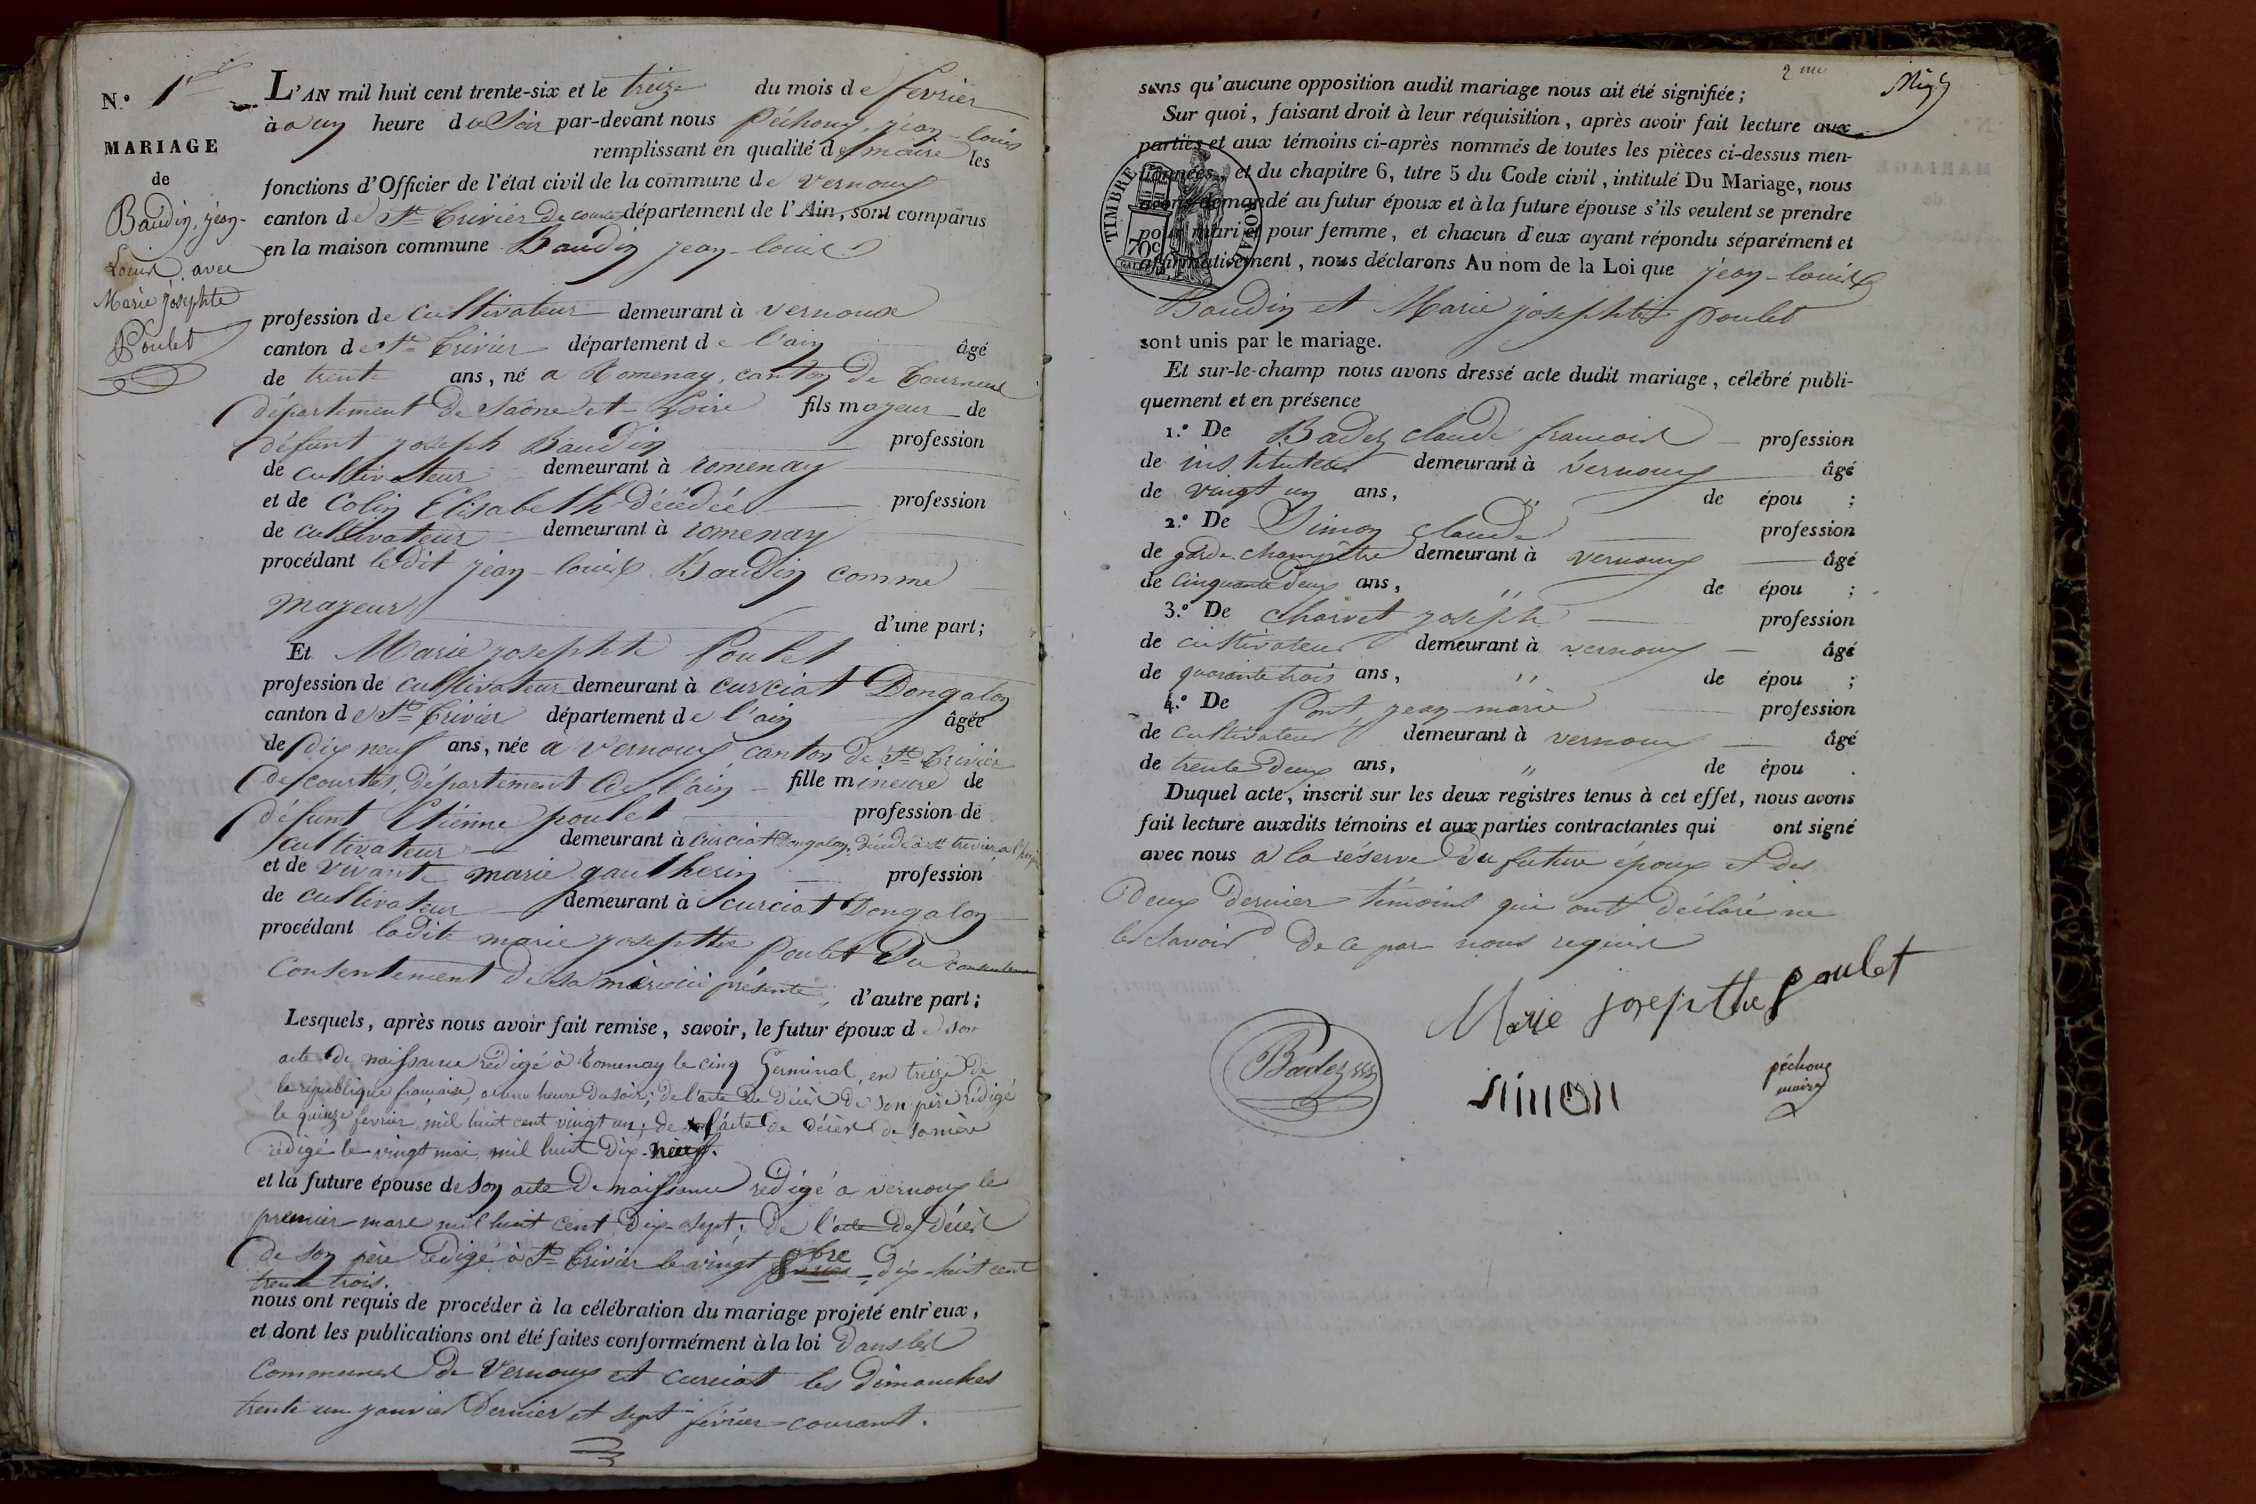 N.° 1er
MARIAGE
de
Baudin, jean-
Louis, avec
Marie josephte
Poulet
L'AN mil huit cent trente-six et le treize du mois de fevrier
à un heure du Soir par-devant nous Péchoux, jean-louis
remplissant en qualité de maire les
fonctions d'Officier de l'état civil de la commune de vernoux
canton de St Trivier De courtes département de l'Ain, sont comparus
en la maison commune Baudin jean-louis
profession de cultivateur demeurant à vernoux
canton de St Trivier département de l'ain âgé
de trente ans, né a Romenay, canton De Tournus
département De Saône et Loire fils mayeur de
défunt joseph Baudin profession
de cultivateur demeurant à romenay
et de Colin Elisabeth décédée profession
de cultivateur demeurant à romenay
procédant le dit jean-louis Baudin comme
mayeur d'une part;
Et Marie josephte Poulet
profession de cultivateur demeurant à curciat Dongalon
canton de St Trivier département de l'ain âgée
de dix neuf ans, née a vernoux, canton De St Trivier
de courtes, département de l'ain fille mineure de
défunt Etienne poulet profession de
cultivateur demeurant à curciat Dongalon, décédé à St trivier
et de vivante marie gautherin profession
de cultivateur demeurant à curciat Dongalon
procédant ladite marie josephte Poulet Du
consentement De sa mère ici présente, d'autre part;
Lesquels, après nous avoir fait remise, savoir, le futur époux de son
acte de naissance rédigé à Romenay le cinq Germinal, en treize de
la république française, a une heure du soir; de l'acte De Décès De son père rédigé
le quinze fevrier, mil huit cent vingt un; de l'acte De décès de sa mère
rédigé le vingt mai, mil huit Dix-neuf.
et la future épouse de son acte De naissance rédigé a vernoux le
premier mars mil huit cent Dix-sept; De l'acte De décès
de son père rédigé à St Trivier le vingt 8bre Dix-huit cent
trente trois.
nous ont requis de procéder à la célébration du mariage projeté entr'eux,
et dont les publications ont été faites conformément à la loi Dans les
Communes de Vernoux et curciat les Dimanches
trente un janvier Dernier et sept février courant.
2me
sans qu'aucune opposition audit mariage nous ait été signifiée;
Sur quoi, faisant droit à leur réquisition, après avoir fait lecture aux
parties et aux témoins ci-après nommés de toutes les pièces ci-dessus men-
tionnées, et du chapitre 6, titre 5 du Code civil, intitulé Du Mariage, nous
avons demandé au futur époux et à la future épouse s'ils veulent se prendre
pour mari et pour femme, et chacun d'eux ayant répondu séparément et
affirmativement, nous déclarons Au nom de la Loi que jean-louis
Baudin et Marie josephte poulet
sont unis par le mariage.
TIMBRE ROYAL
70c
Et sur-le-champ nous avons dressé acte dudit mariage, célébré publi-
quement et en présence
1.° De Badez claude francois profession
de instituteur demeurant à vernoux âgé
de vingt un ans, " de épou ;
2.° De Simon claude profession
de garde-champêtre demeurant à vernoux âgé
de cinquante deux ans, " de épou ;
3.° De Charvet joseph profession
de cultivateur demeurant à vernoux âgé
de quarante trois ans, " de épou ;
4.° De Pont jean-marie profession
de cultivateur demeurant à vernoux âgé
de trente Deux ans, " de épou .
Duquel acte, inscrit sur les deux registres tenus à cet effet, nous avons
fait lecture auxdits témoins et aux parties contractantes qui ont signé
avec nous a la réserve Du future époux et des
Deux Dernier témoins qui ont déclaré ne
le savoir De ce par nous requis
Marie josepthe poulet
Badez
simon
péchoux
maire